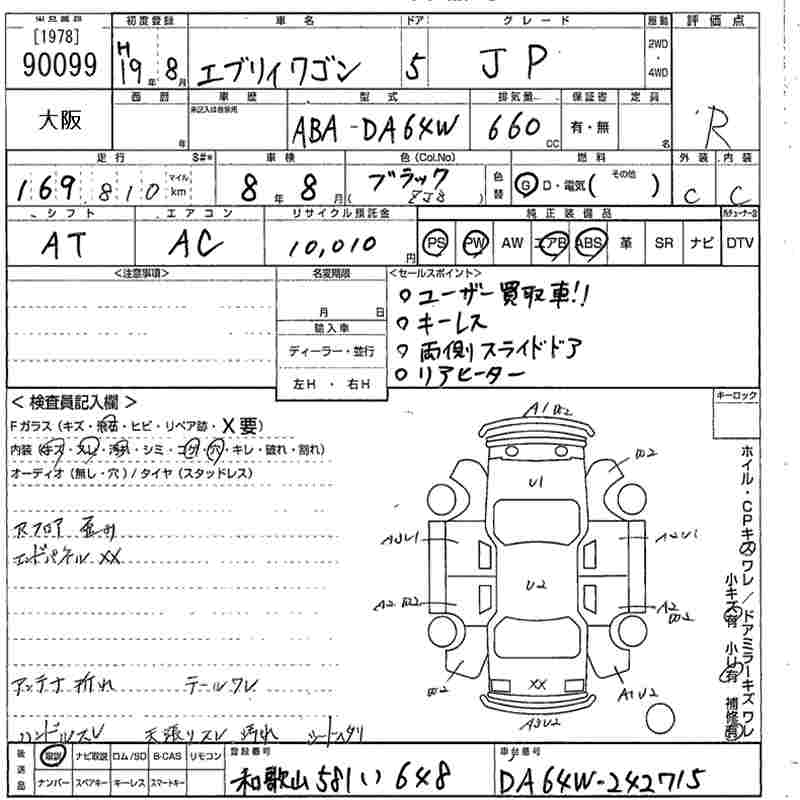 [1978]
90099
初度登録
車名
ドア
グレード
駆動
評価点
H
19年 8月
エブリィワゴン
5
JP
2WD
・
4WD
大阪
西暦
車歴
型式
排気量
保証書
定員
未記入は自家用
年
ABA-DA64W
660
CC
有・無
名
R
走行
S#*
車検
色(Col.No)
燃料
外装
内装
169,810
マイル
km
8年 8月
ブラック
(ZJ3)
色替
G D・電気( その他 )
C
C
シフト
エアコン
リサイクル預託金
純正装備品
AT
AC
10,010
円
PS PW AW エアB ABS 革 SR ナビ DTV
<注意事項>
名変期限
<セールスポイント>
月 日
輸入車
ディーラー・並行
左H ・ 右H
ユーザー買取車!!
キーレス
両側スライドドア
リアヒーター
<検査員記入欄>
キーロック
Fガラス(キズ・飛石・ヒビ・リペア跡・X要)
内装(キズ・スレ・汚れ・シミ・コゲ・穴・キレ・破れ・割れ)
オーディオ(無し・穴)/タイヤ(スタッドレス)
Rフロア 歪み
エンドパネル XX
アンテナ折れ テールワレ
ハンドルスレ 天張リスレ 汚れ
A1 B2
B2
U1
A3U1
A2U1
U2
A2 B2
A2
B2
B2
XX
A1U2
A3U2
ホイル・CPキズワレ/ドアミラーキズワレ
小キズ有 小U有 補修有
後送品
取説 ナビ取説 ロム/SD B-CAS リモコン
ナンバー スペアキー キーレス スマートキー
登録番号
和歌山 581 い 648
車台番号
DA64W-242715